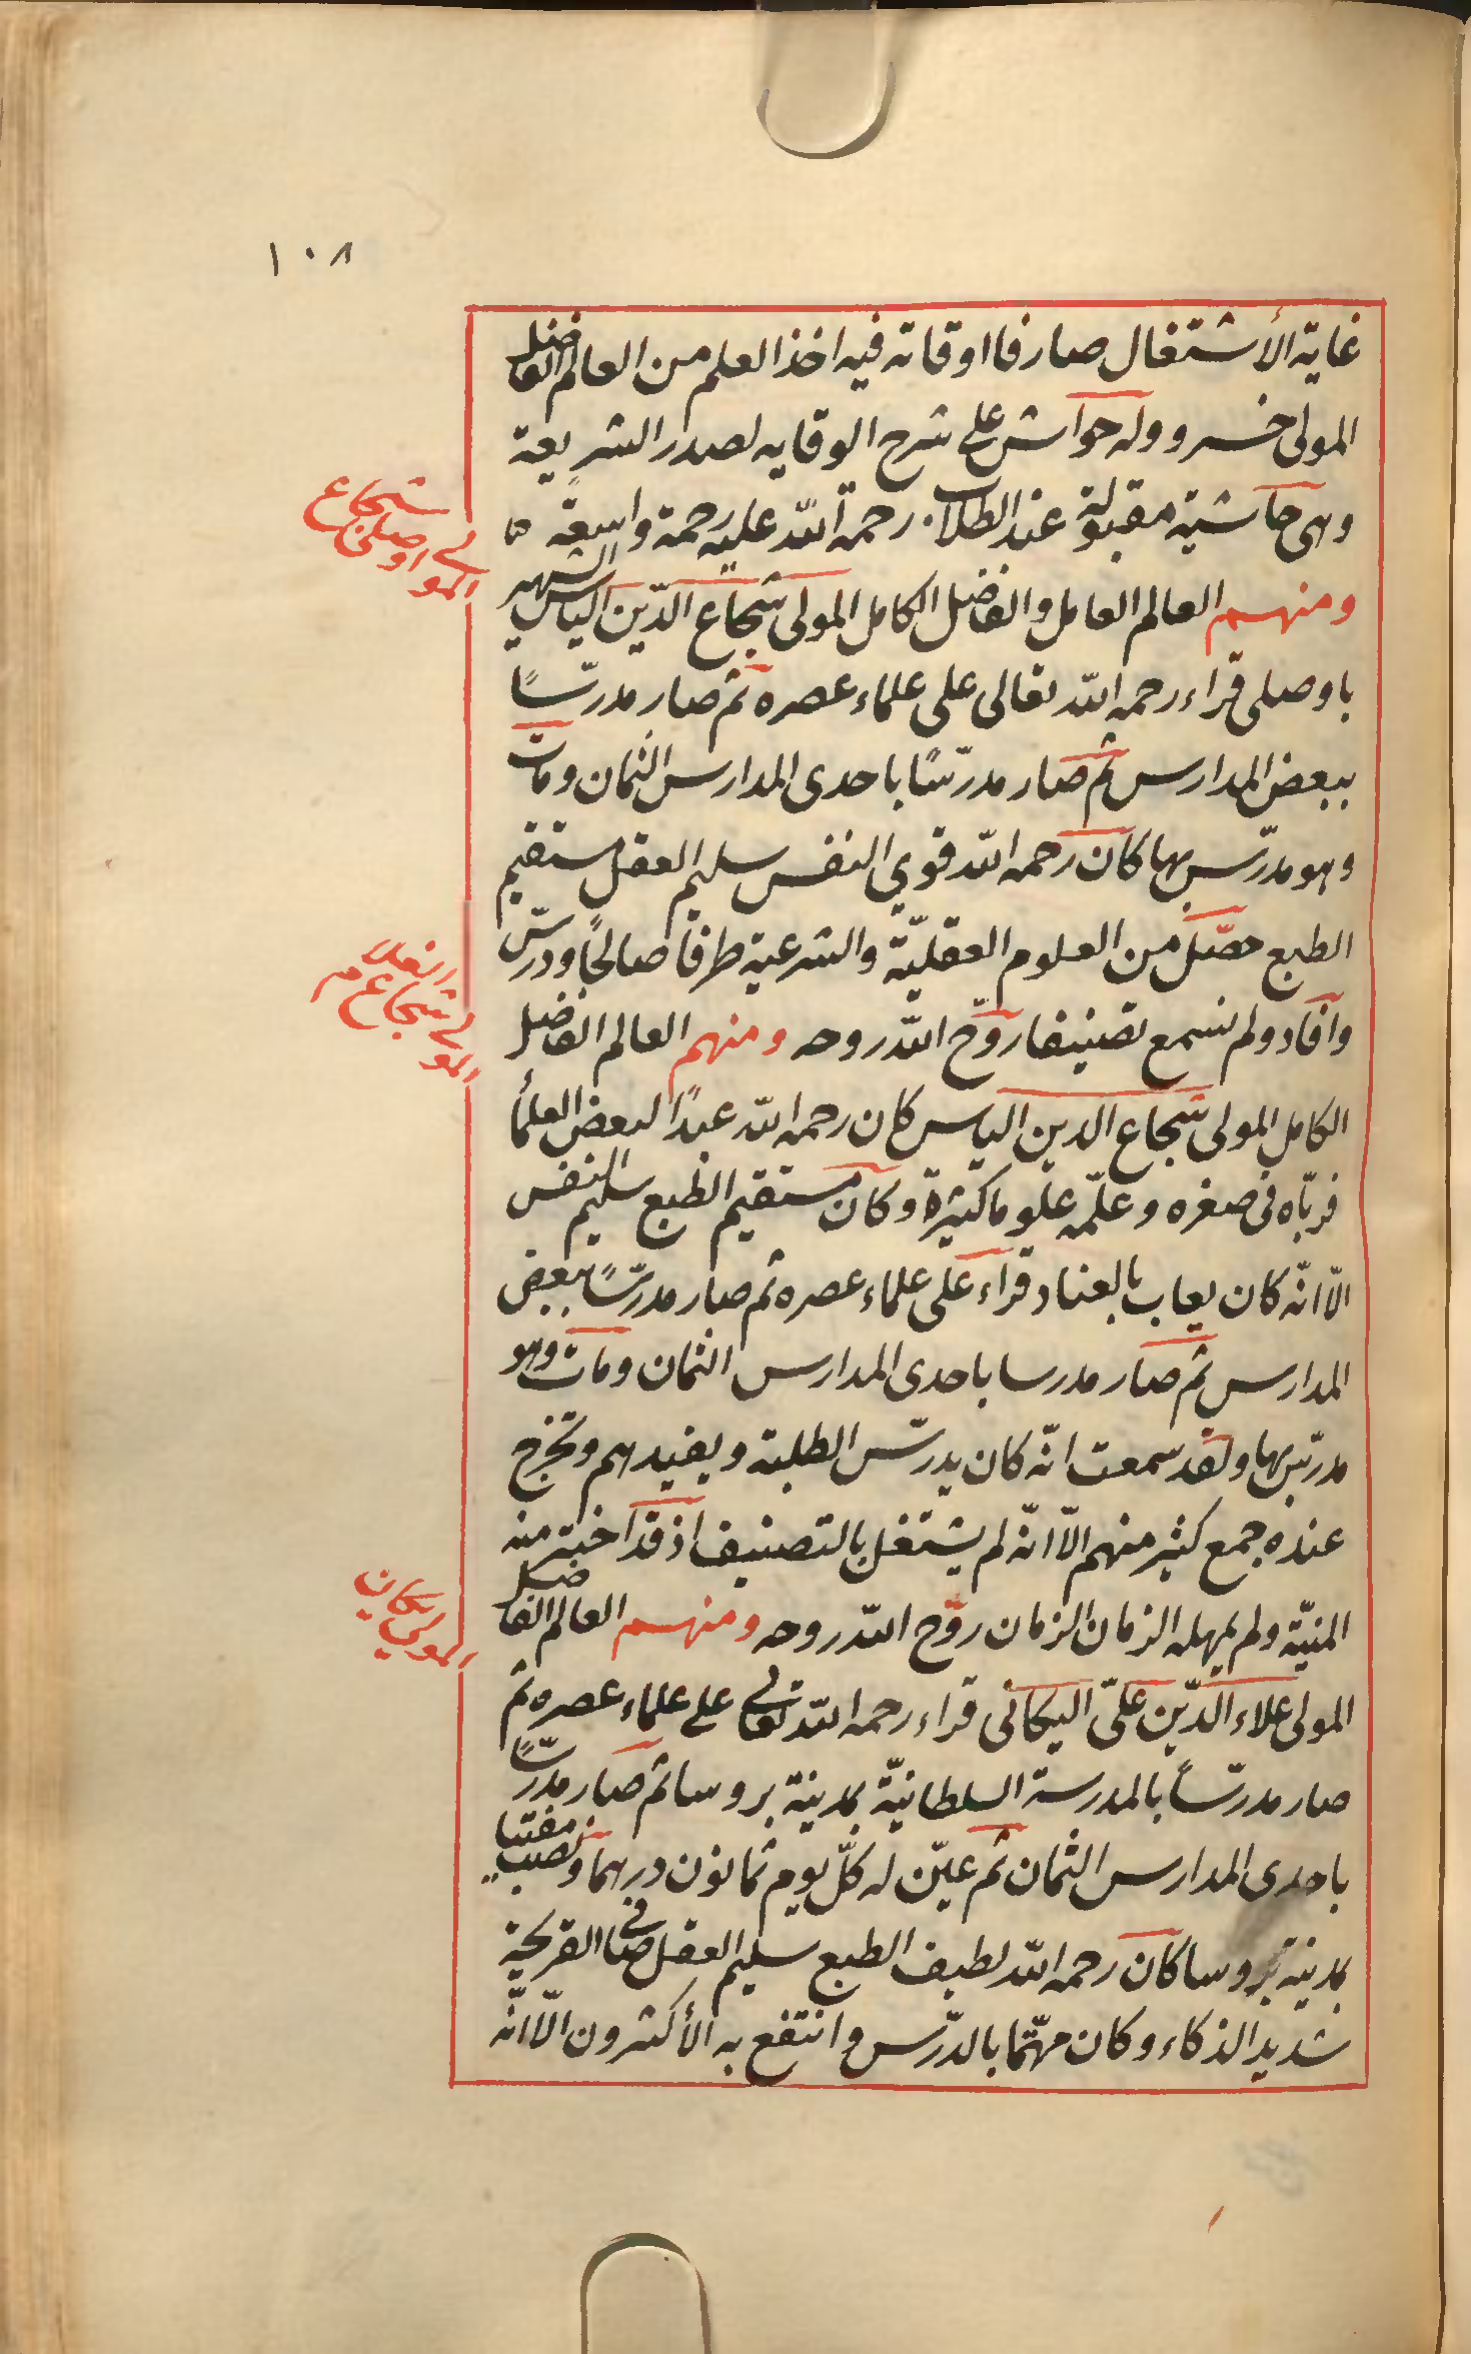 ١٠٨
غاية الأشتغال صارفا اوقاته فيه اخذ العلم من العالم الفاضل
المولى خسرو وله حواش على شرح الوقايه لصدر الشريعة
وهى حاشية مقبولة عند الطلاب رحمة الله عليه رحمة واسعة
ومنهم العالم العامل والفاضل الكامل المولى شجاع الدّين الياس الشهير
باوصلى قراء رحمه الله تعالى على علماء عصره ثم صار مدرّسًا
ببعض المدارس ثم صار مدرّسًا باحدى المدارس الثمان ومات
وهو مدرّس بها كان رحمه الله قوي النفس سليم العقل مستقيم
الطبع حصّل من العلوم العقليّة والشرعية طرفا صالحًا ودرّس
وافاد ولم نسمع تصنيفا روّح الله روحه ومنهم العالم الفاضل
الكامل المولى شجاع الدين الياس كان رحمه الله عبدًا لبعض العلمأ
فربّاه فى صغره وعلّمه علوما كثيرة وكان مستقيم الطبع سليم النفس
الّا انّه كان يعاب بالعناد قراء على علماء عصره ثم صار مدرّسًا ببعض
المدارس ثم صار مدرسا باحدى المدارس الثمان ومات وهو
مدرّس بها ولقد سمعت انّه كان يدرّس الطلبة ويفيدهم وتخرج
عنده جمع كثير منهم الّا انّه لم يشتغل بالتصنيف اذ قد اخترمته
المنيّة ولم يمهله الزمان الزمان روّح الله روحه ومنهم العالم الفاضل
المولى علاء الدّين علىّ اليكانى قراء رحمه الله تعالى على علماء عصره ثم
صار مدرّساً بالمدرسة السلطانيّة بمدينة بروسا ثم صار مدرّسًا
باحدى المدارس الثمان ثم عيّن له كلّ يوم ثمانون درهما ونصب مفتيا
بمدينة بروسا كان رحمه الله لطيف الطبع سليم العقل صافى القريحة
شديد الذكاء وكان مهتّما بالدّرس وانتفع به الأكثرون الّا انّه
المولى شجاع
اوصلى
المولى شجاع
المولى يكان